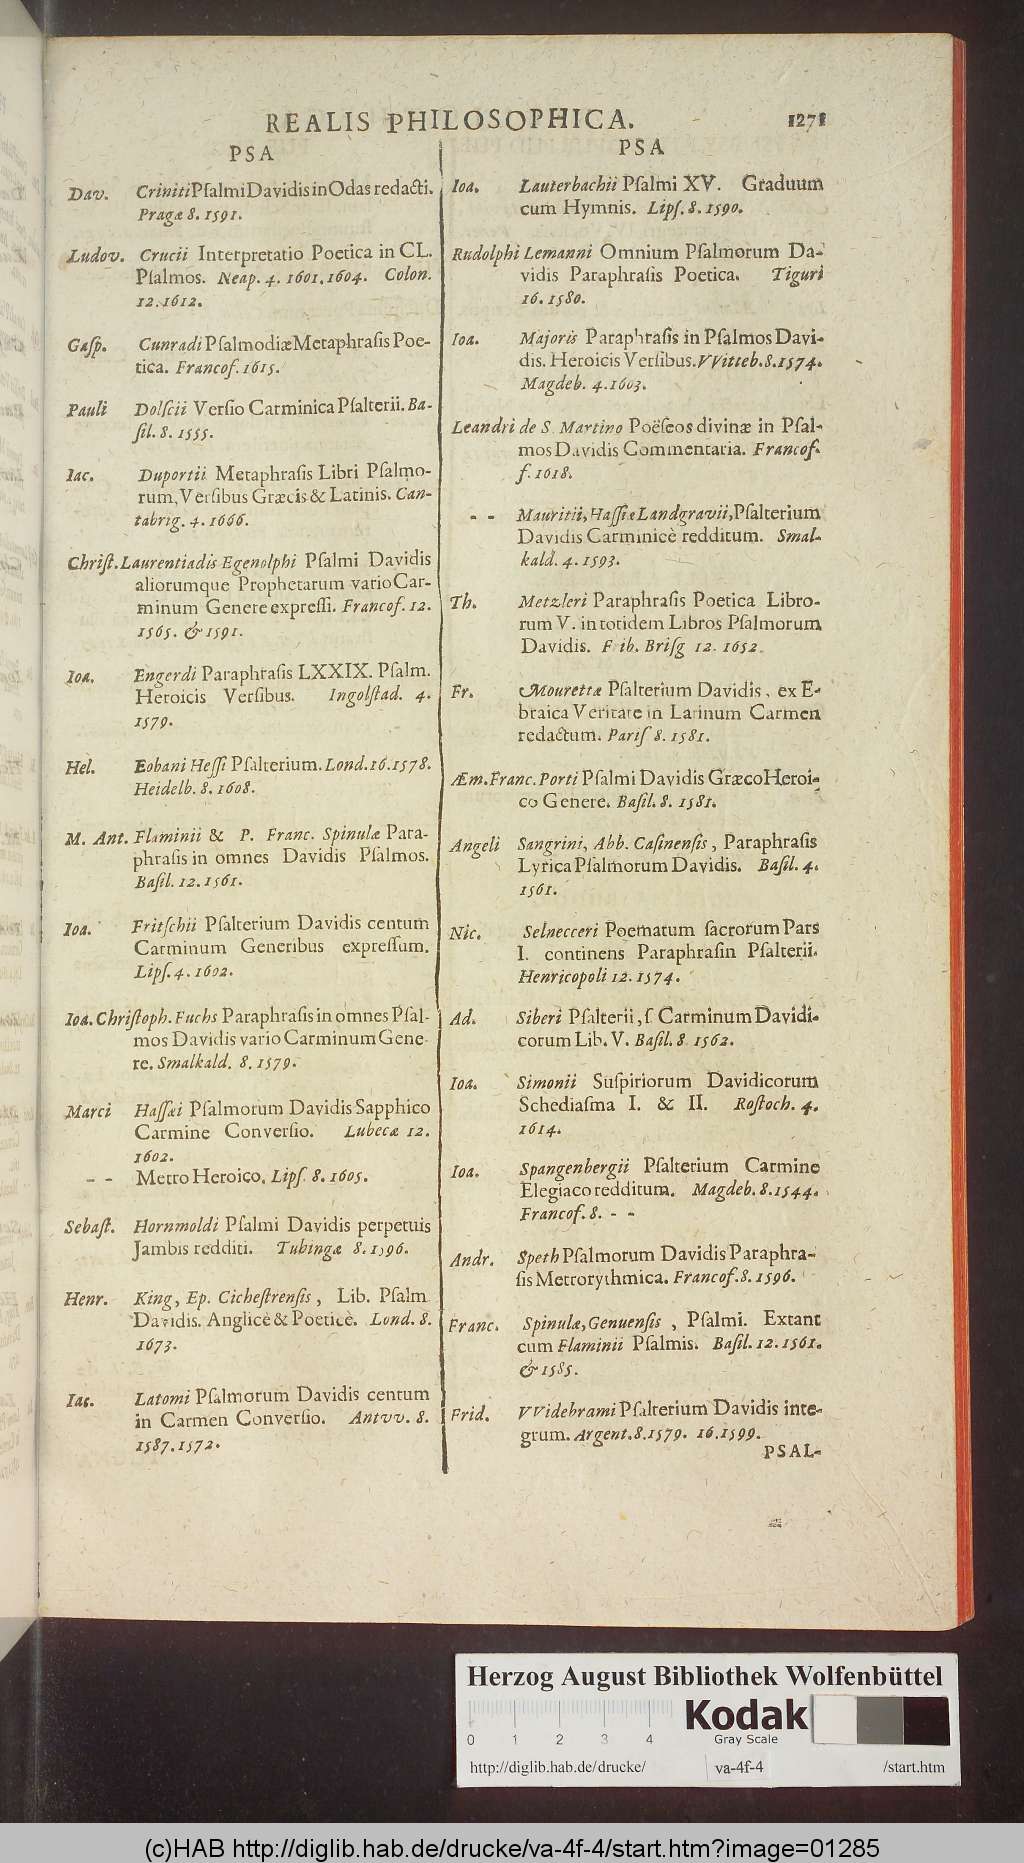 REALIS PHILOSOPHICA. 1271
PSA
Dav. Criniti Pſalmi Davidis in Odas redacti.
Pragæ 8. 1591.
Ludov. Crucii Interpretatio Poetica in CL.
Pſalmos. Neap. 4. 1601. 1604. Colon.
12. 1612.
Gaſp. Cunradi Pſalmodiæ Metaphraſis Poe-
tica. Francof. 1615.
Pauli Dolſcii Verſio Carminica Pſalterii. Ba-
ſil. 8. 1555.
Iac. Duportii Metaphraſis Libri Pſalmo-
rum, Verſibus Græcis & Latinis. Can-
tabrig. 4. 1666.
Chriſt. Laurentiadis Egenolphi Pſalmi Davidis
aliorumque Prophetarum vario Car-
minum Genere expreſſi. Francof. 12.
1565. & 1591.
Ioa. Engerdi Paraphraſis LXXIX. Pſalm.
Heroicis Verſibus. Ingolſtad. 4.
1579.
Hel. Eobani Heſſi Pſalterium. Lond. 16. 1578.
Heidelb. 8. 1608.
M. Ant. Flaminii & P. Franc. Spinulæ Para-
phraſis in omnes Davidis Pſalmos.
Baſil. 12. 1561.
Ioa. Fritſchii Pſalterium Davidis centum
Carminum Generibus expreſſum.
Lipſ. 4. 1602.
Ioa. Chriſtoph. Fuchs Paraphraſis in omnes Pſal-
mos Davidis vario Carminum Gene-
re. Smalkald. 8. 1579.
Marci Haſſæi Pſalmorum Davidis Sapphico
Carmine Converſio. Lubecæ 12.
1602.
- - Metro Heroico. Lipſ. 8. 1605.
Sebaſt. Hornmoldi Pſalmi Davidis perpetuis
Jambis redditi. Tubingæ 8. 1596.
Henr. King, Ep. Ciceſtrenſis, Lib. Pſalm
Davidis. Anglicè & Poeticè. Lond. 8.
1673.
Iac. Latomi Pſalmorum Davidis centum
in Carmen Converſio. Antvv. 8.
1587. 1572.
PSA
Ioa. Lauterbachii Pſalmi XV. Graduum
cum Hymnis. Lipſ. 8. 1590.
Rudolphi Lemanni Omnium Pſalmorum Da-
vidis Paraphraſis Poetica. Tiguri
16. 1580.
Ioa. Majoris Paraphraſis in Pſalmos Davi-
dis. Heroicis Verſibus. VVitteb. 8. 1574.
Magdeb. 4. 1603.
Leandri de S. Martino Poëſeos divinæ in Pſal-
mos Davidis Commentaria. Francof.
f. 1618.
- - Mauritii, Haſſiæ Landgravii, Pſalterium
Davidis Carminicè redditum. Smal-
kald. 4. 1593.
Th. Metzleri Paraphraſis Poetica Libro-
rum V. in totidem Libros Pſalmorum
Davidis. Frib. Briſg 12. 1652.
Fr. Mourettæ Pſalterium Davidis, ex E-
braica Veritate in Latinum Carmen
redactum. Pariſ 8. 1581.
Æm. Franc. Porti Pſalmi Davidis Græco Heroi-
co Genere. Baſil. 8. 1581.
Angeli Sangrini, Abb. Caſinenſis, Paraphraſis
Lyrica Pſalmorum Davidis. Baſil. 4.
1561.
Nic. Selnecceri Poematum ſacrorum Pars
I. continens Paraphraſin Pſalterii.
Henricopoli 12. 1574.
Ad. Siberi Pſalterii, ſ. Carminum Davidi-
corum Lib. V. Baſil. 8 1562.
Ioa. Simonii Suſpiriorum Davidicorum
Schediaſma I. & II. Roſtoch. 4.
1614.
Ioa. Spangenbergii Pſalterium Carmine
Elegiaco redditum. Magdeb. 8. 1544.
Francof. 8. - -
Andr. Speth Pſalmorum Davidis Paraphra-
ſis Metrorythmica. Francof. 8. 1596.
Franc. Spinulæ, Genuenſis, Pſalmi. Extant
cum Flaminii Pſalmis. Baſil. 12. 1561.
& 1585.
Frid. VVidebrami Pſalterium Davidis inte-
grum. Argent. 8. 1579. 16. 1599.
PSAL-
Herzog August Bibliothek Wolfenbüttel
0 1 2 3 4
Kodak
Gray Scale
http://diglib.hab.de/drucke/ va-4f-4 /start.htm
(c)HAB http://diglib.hab.de/drucke/va-4f-4/start.htm?image=01285